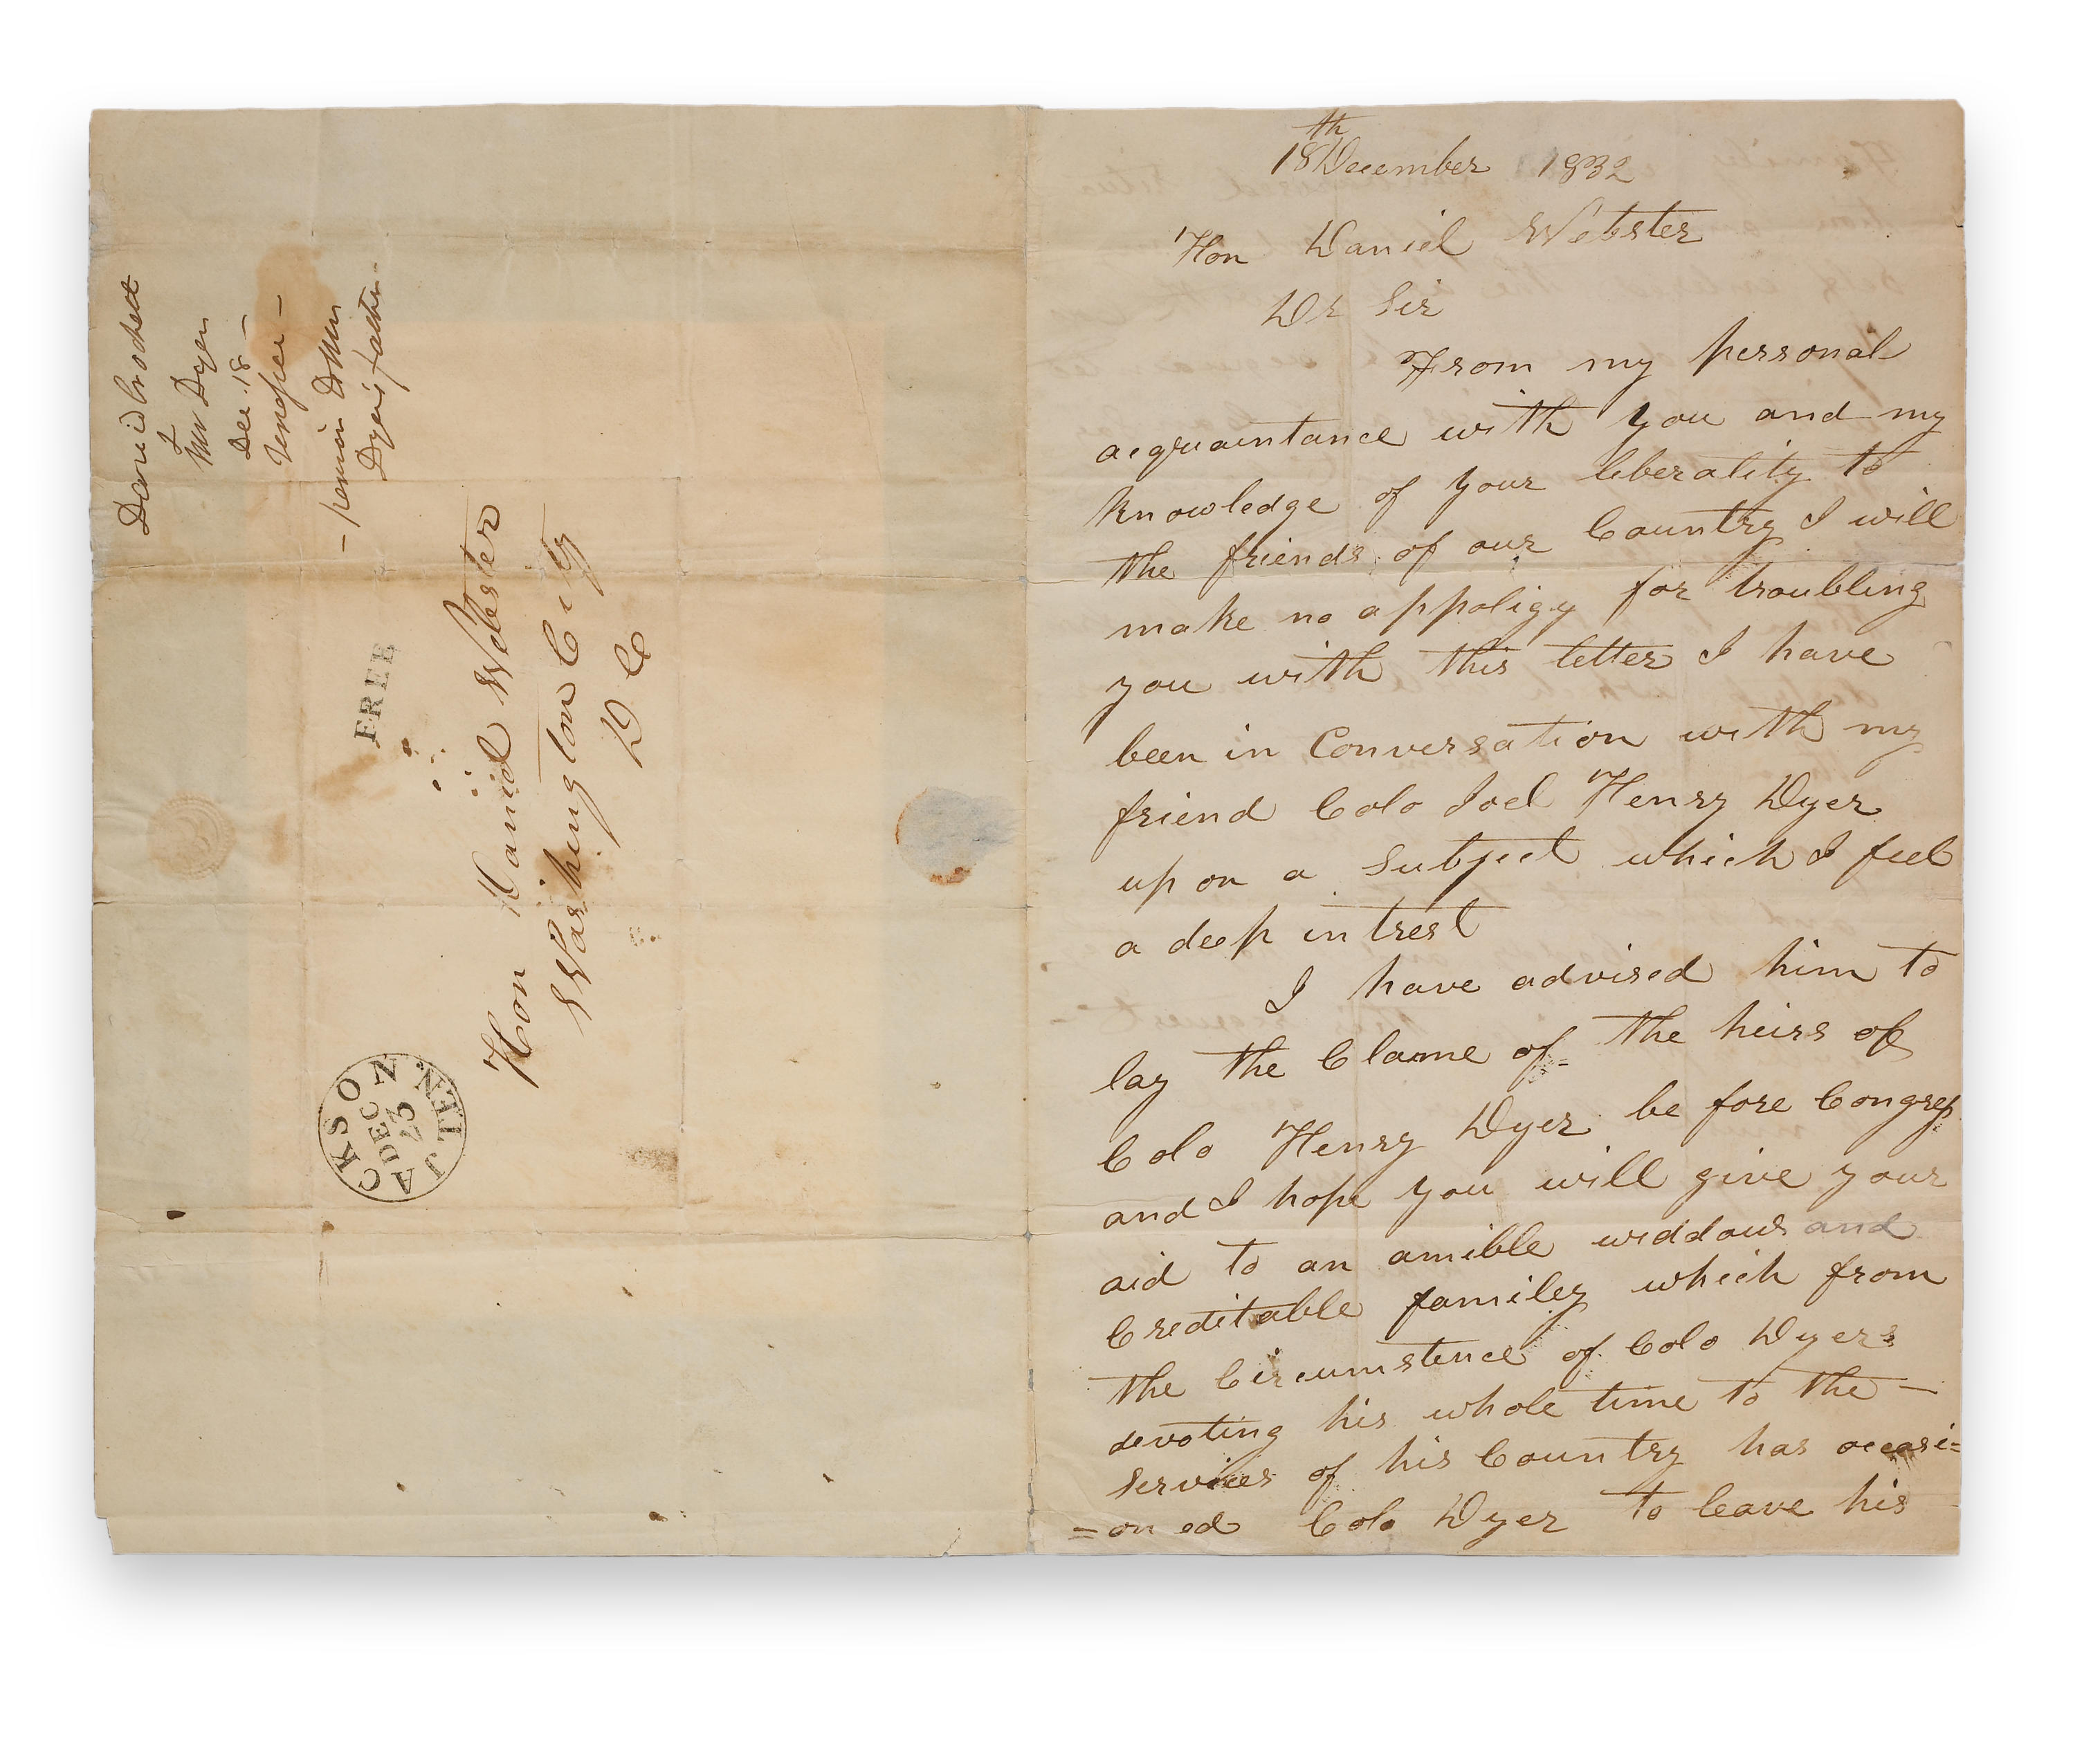 David Crockett
&
Mr Dyer
Dec. 18 —
Tennessee —
— pension
Dyer's father
FREE
Hon Daniel Webster
Washington City
D C
JACKSON TEN
DEC
23
18th December 1832
Hon Daniel Webster
Dr Sir
From my personal
acquaintance with you and my
knowledge of your liberality to
the friends of our Country I will
make no appoligy for troubling
you with this letter I have
been in Conversation with my
friend Colo Joel Henry Dyer
upon a Subject which I feel
a deep intrest
I have advised him to
lay the Clame of the heirs of
Colo Henry Dyer be fore Congress
and I hope you will give your
aid to an amible widdow and
Creditable familey which from
the Circumstence of Colo Dyers
devoting his whole time to the —
Services of his Country has occasi=
=on ed Colo Dyer to leave his